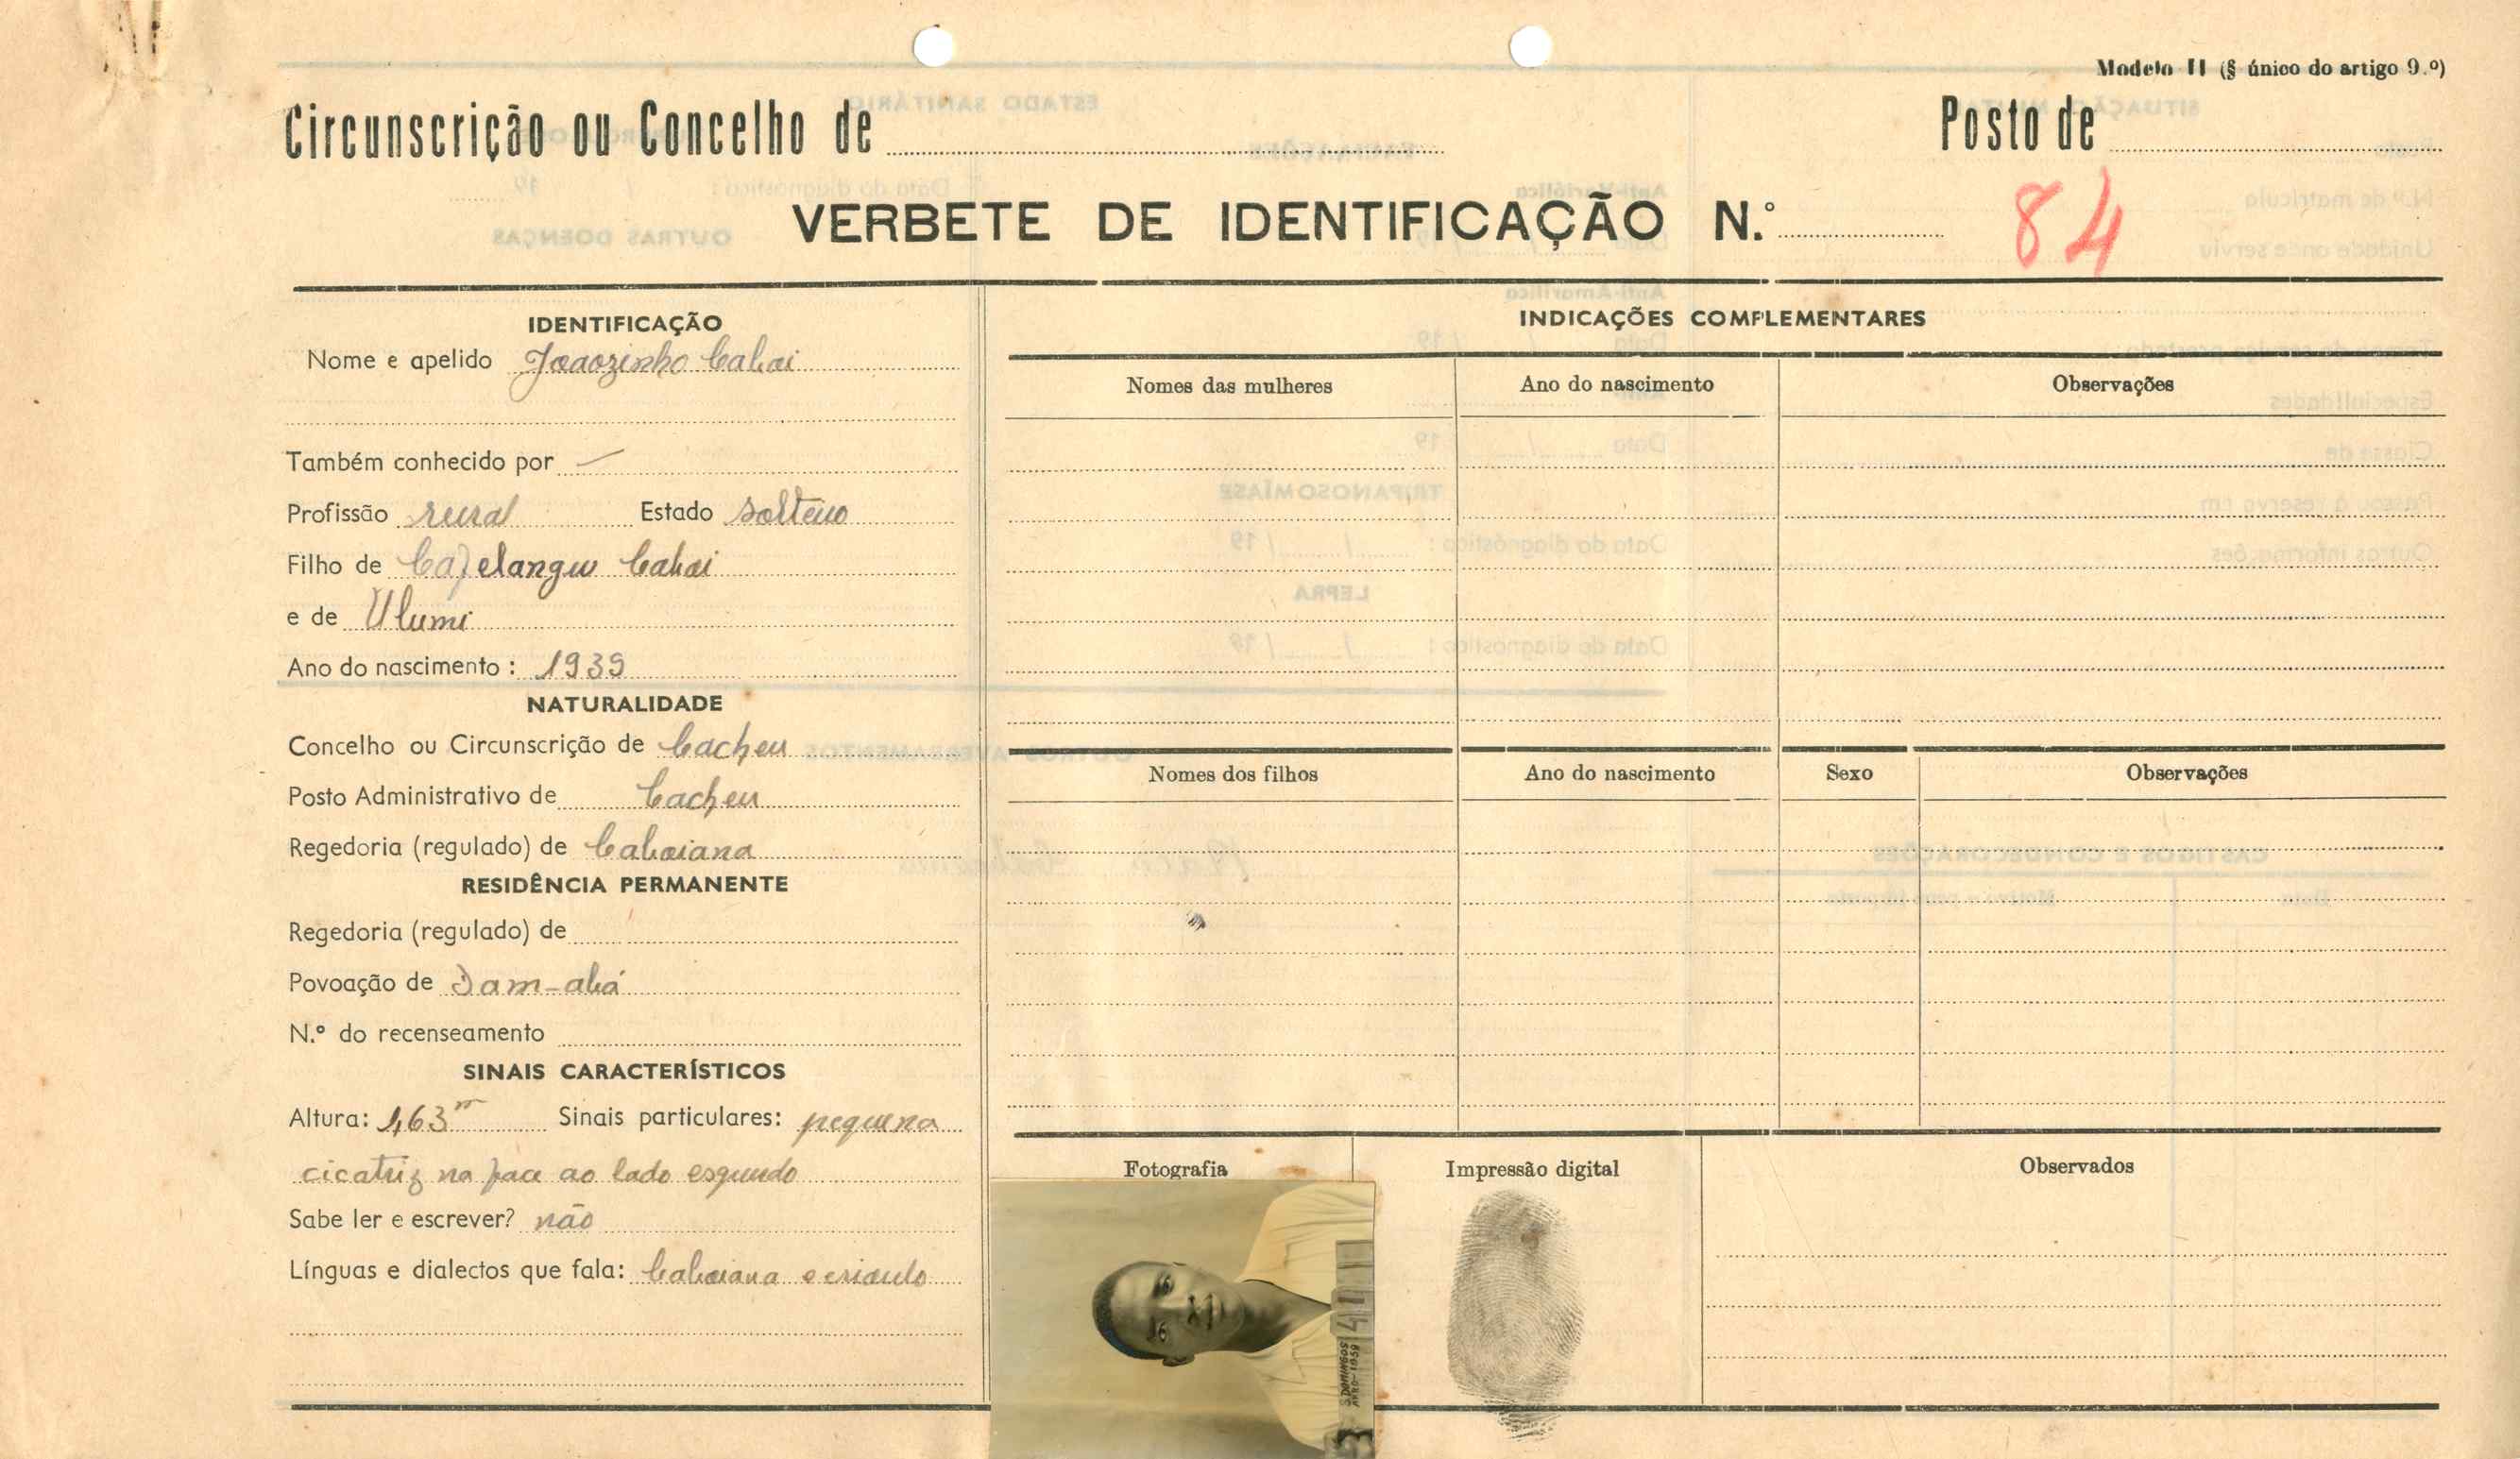 Modelo II (§ único do artigo 9.º)
Circunscrição ou Concelho de
Posto de
VERBETE DE IDENTIFICAÇÃO N.º 84
IDENTIFICAÇÃO
Nome e apelido Joaozinho Cabai
Também conhecido por —
Profissão rural Estado solteiro
Filho de Cabai
e de Ulumi
Ano do nascimento : 1939
NATURALIDADE
Concelho ou Circunscrição de Cacheu
Posto Administrativo de Cacheu
Regedoria (regulado) de Caboiana
RESIDÊNCIA PERMANENTE
Regedoria (regulado) de
Povoação de
N.º do recenseamento
SINAIS CARACTERÍSTICOS
Altura: 1,63m Sinais particulares: pequena
cicatriz na face ao lado esquerdo
Sabe ler e escrever? não
Línguas e dialectos que fala: Caboiana e crioulo
INDICAÇÕES COMPLEMENTARES
Nomes das mulheres Ano do nascimento Observações
Nomes dos filhos Ano do nascimento Sexo Observações
Fotografia Impressão digital Observados
S. DOMINGOS
ANRO-1959